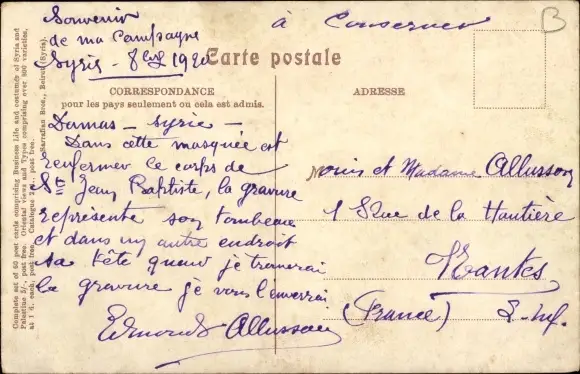 Souvenir
de ma Campagne
Syrie - 8bre 1920
à Conserver
B
Carte postale
CORRESPONDANCE
pour les pays seulement ou cela est admis.
ADRESSE
Damas - Syrie -
Dans cette masquée est
renfermer le corps de
St Jean Baptiste, la gravure
représente son tombeau
et dans un autre endroit
sa tête quand je trouverai
la gravure je vous l'enverrai
Edmond Allusson
et Madame Allusson
1 Rue de la Hautière
Nantes
(France) L-Inf.
Complete set of 60 post cards comprising Business life and costumes of Syria and
Palestine 5/-, post free. Oriental views and Types comprising over 800 varieties,
at 1 d. each, post free. Catalogue post free.
Sarrafian Bros., Beirut (Syria).